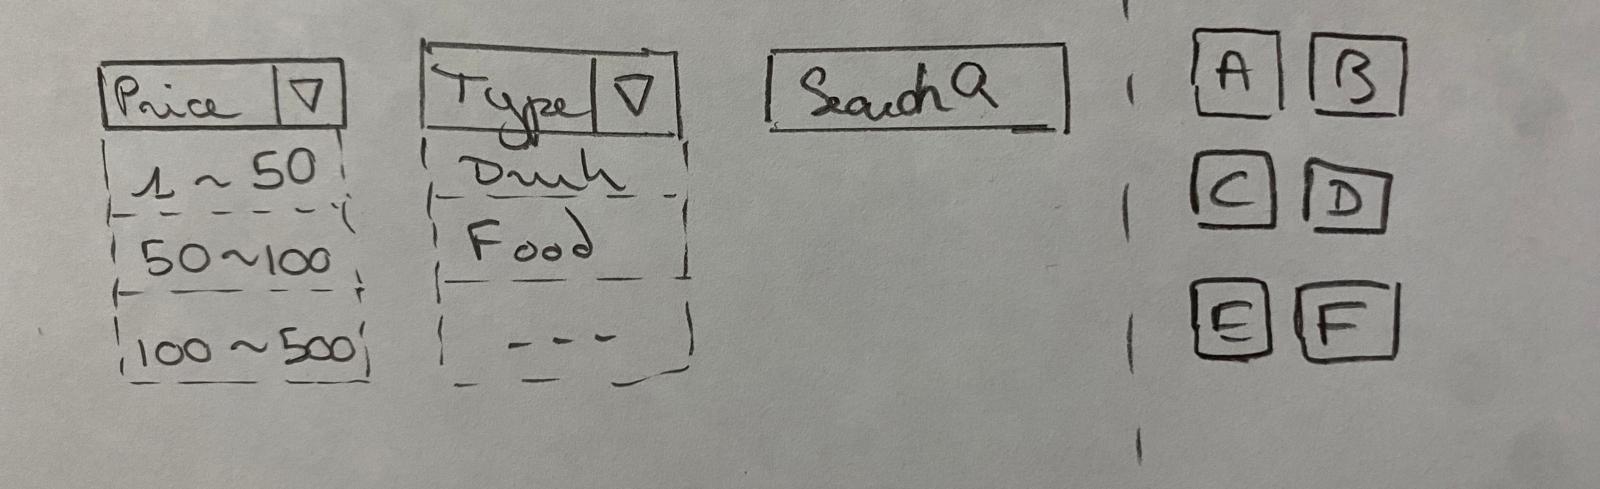 Price
1 ~ 50
50 ~ 100
100 ~ 500
Type
Drink
Food
---
Search
A B
C D
E F